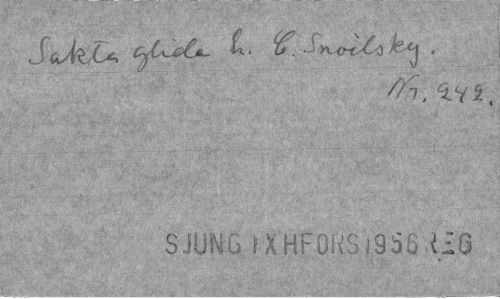 Sakta glida h. C. Snoilsky.
Nr. 242.
SJUNG IX HFORS 1956 REG